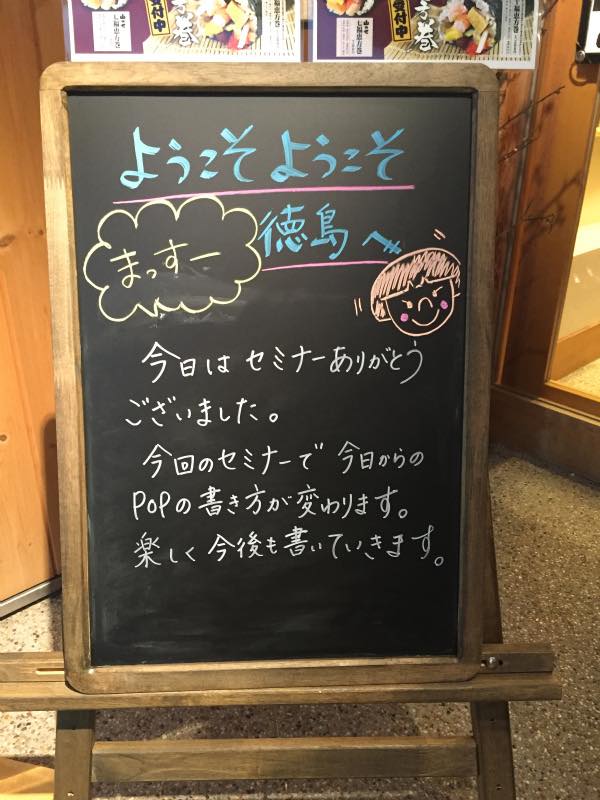 受付中
手巻
七福恵方巻
受付中
手巻
七福恵方巻
ようこそ ようこそ
まっすー
徳島へ
今日は セミナーありがとう
ございました。
今回のセミナーで 今日からの
POPの書き方が変わります。
楽しく 今後も書いていきます。